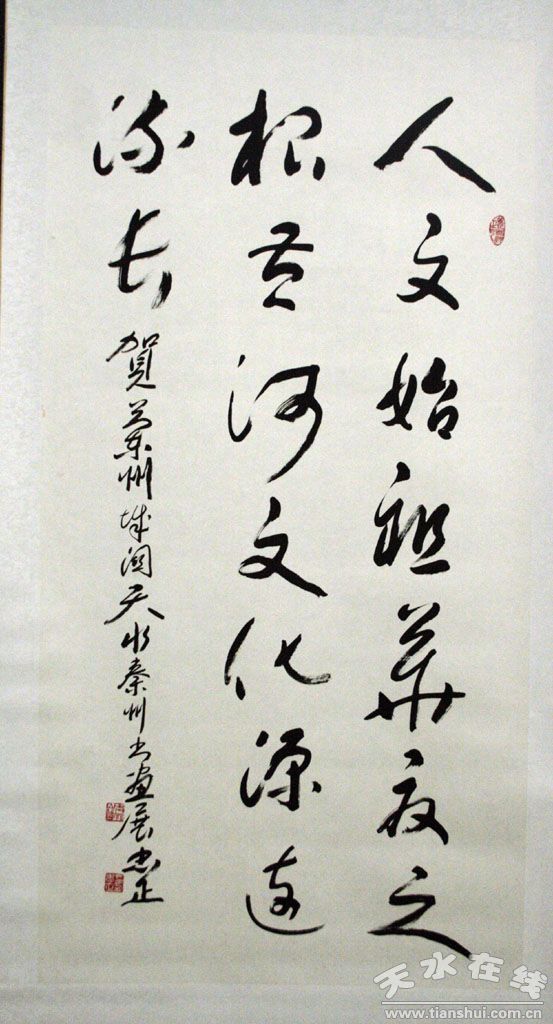 人文始祖華夏之
根黄河文化源远
流长
贺兰州城关天水秦州书画展忠正
天水在线
www.tianshui.com.cn